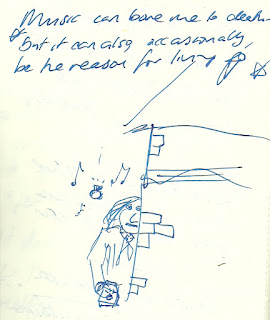 Music can bore me to death
But it can also occasionally,
be he reason for living